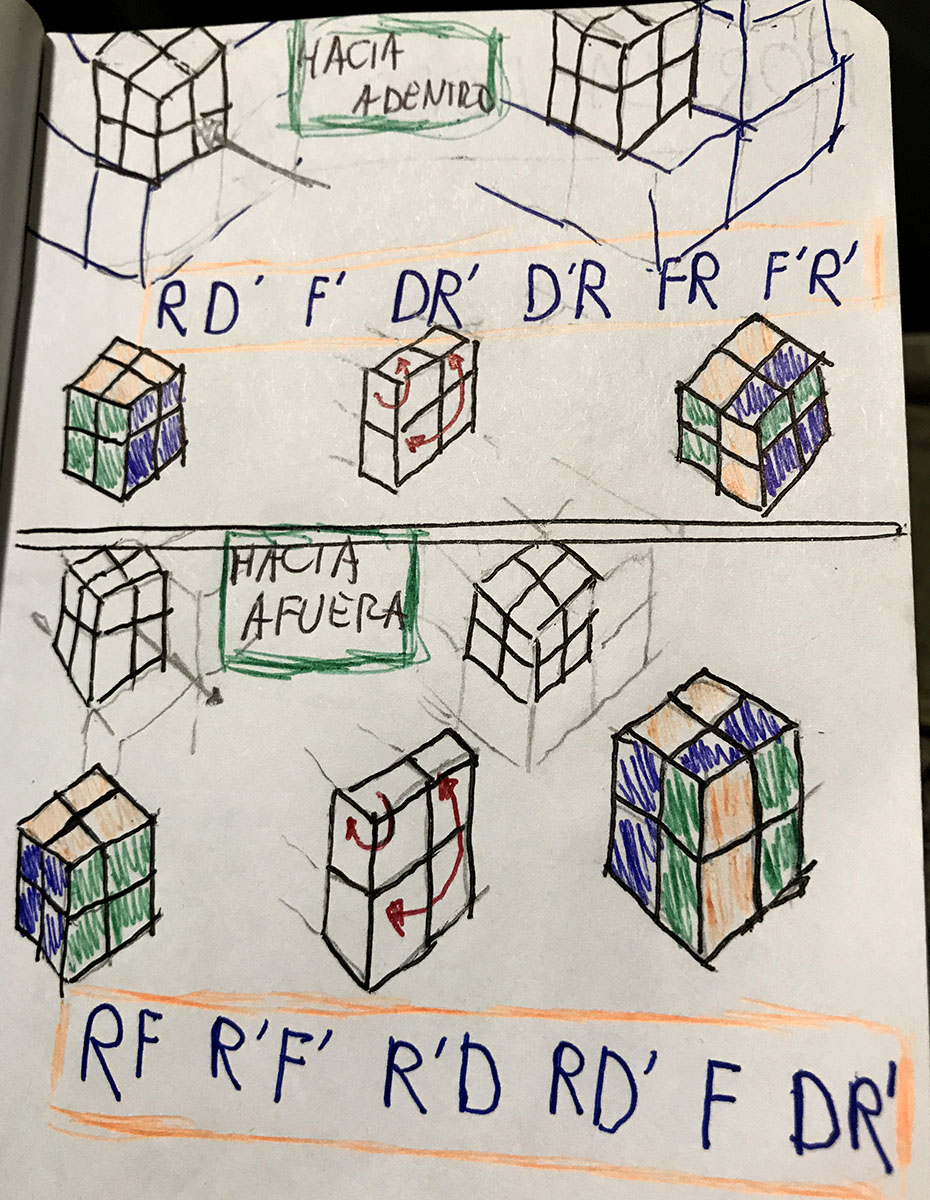 HACIA
ADENTRO
RD' F' DR' D'R FR F'R'
HACIA
AFUERA
RF R'F' R'D RD' F DR'